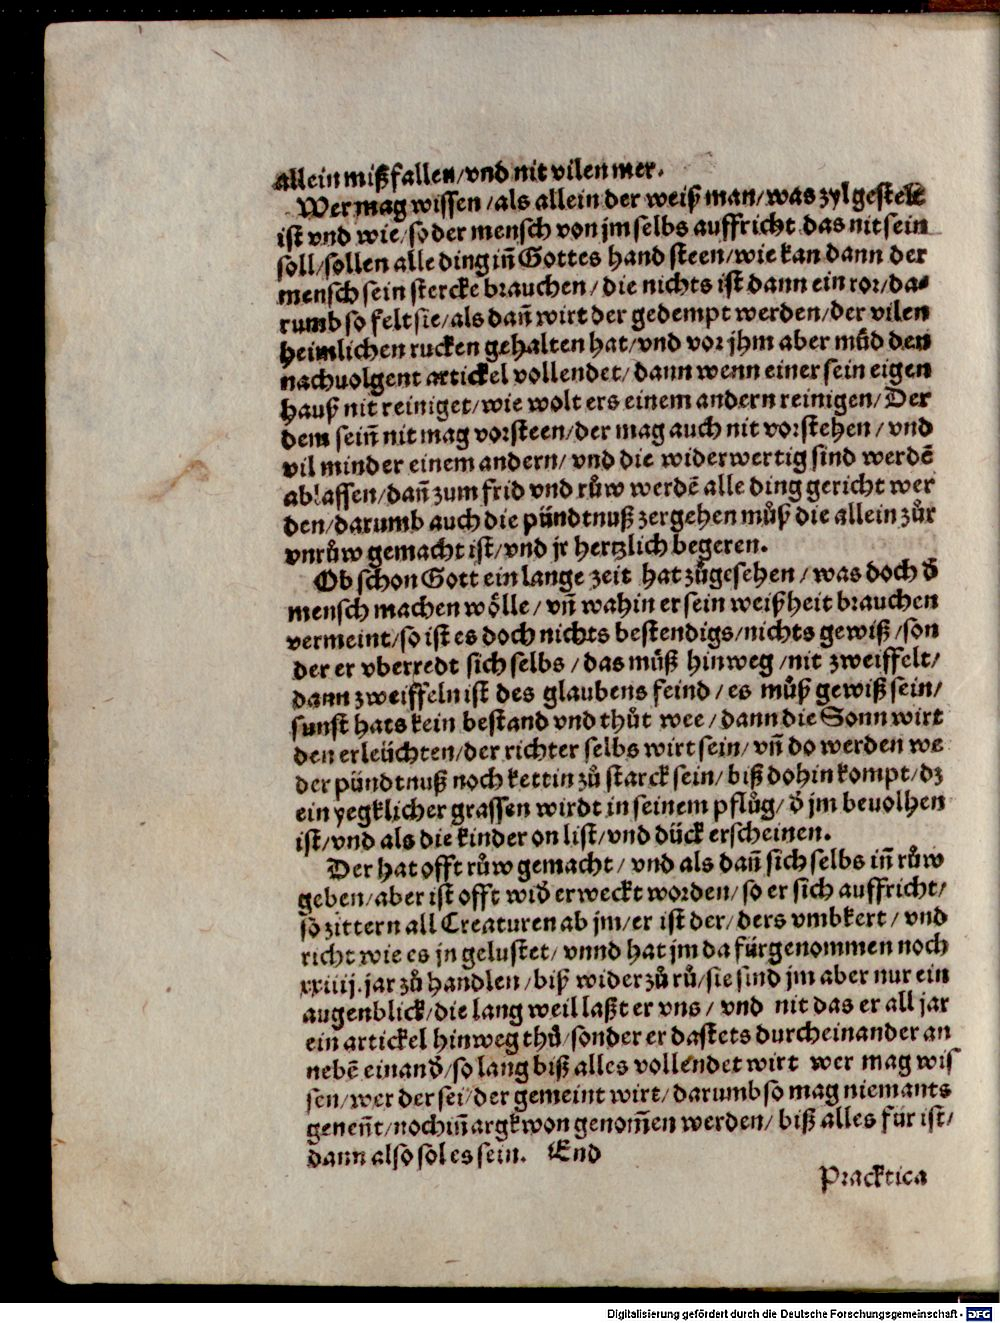 allein mißfallen/vnd nit vilen mer.
Wer mag wissen/als allein der weiß man/was zyl gestelt
ist vnd wie/so der mensch von jm selbs auffricht das nit sein
soll/sollen alle ding iñ Gottes hand steen/wie kan dann der
mensch sein stercke brauchen/die nichts ist dann ein ror/da⸗
rumb so felt sie/als dañ wirt der gedempt werden/der vilen
heimlichen rucken gehalten hat/vnd vor jhm aber můd den
nachuolgent artickel vollendet/dann wenn einer sein eigen
hauß nit reiniget/wie wolt ers einem andern reinigen/Der
dem seiñ nit mag vorsteen/der mag auch nit vorstehen/vnd
vil minder einem andern/vnd die widerwertig sind werdē
ablassen/dañ zum frid vnd růw werdē alle ding gericht wer
den/darumb auch die pündtnuß zergehen můß die allein zůr
vnrůw gemacht ist/vnd jr hertzlich begeren.
Ob schon Gott ein lange zeit hat zůgesehen/was doch d̄
mensch machen wölle/vñ wahin er sein weißheit brauchen
vermeint/so ist es doch nichts bestendigs/nichts gewiß/son
der er vberredt sich selbs/das můß hinweg/nit zweiffelt/
dann zweiffeln ist des glaubens feind/es můß gewiß sein/
sunst hats kein bestand vnd thůt wee/dann die Sonn wirt
den erleüchten/der richter selbs wirt sein/vñ do werden we
der pündtnuß noch kettin zů starck sein/biß dohin kompt/dz
ein yegklicher grassen wirdt in seinem pflůg/d̄ jm beuolhen
ist/vnd als die kinder on list/vnd dück erscheinen.
Der hat offt růw gemacht/vnd als dañ sich selbs iñ růw
geben/aber ist offt wid̄ erweckt worden/so er sich auffricht/
so zittern all Creaturen ab jm/er ist der/ders vmbkert/vnd
richt wie es jn gelustet/vnnd hat jm da fürgenommen noch
xxiiij. jar zů handlen/biß wider zů rů/sie sind jm aber nur ein
augenblick/die lang weil laßt er vns/vnd nit das er all jar
ein artickel hinweg thů/sonder er da stets durcheinander an
nebē einand̄/so lang biß alles vollendet wirt wer mag wis
sen/wer der sei/der gemeint wirt/darumb so mag niemants
geneñt/noch iñ argkwon genom̄en werden/biß alles für ist/
dann also sol es sein. End
Practica
Digitalisierung gefördert durch die Deutsche Forschungsgemeinschaft - DFG